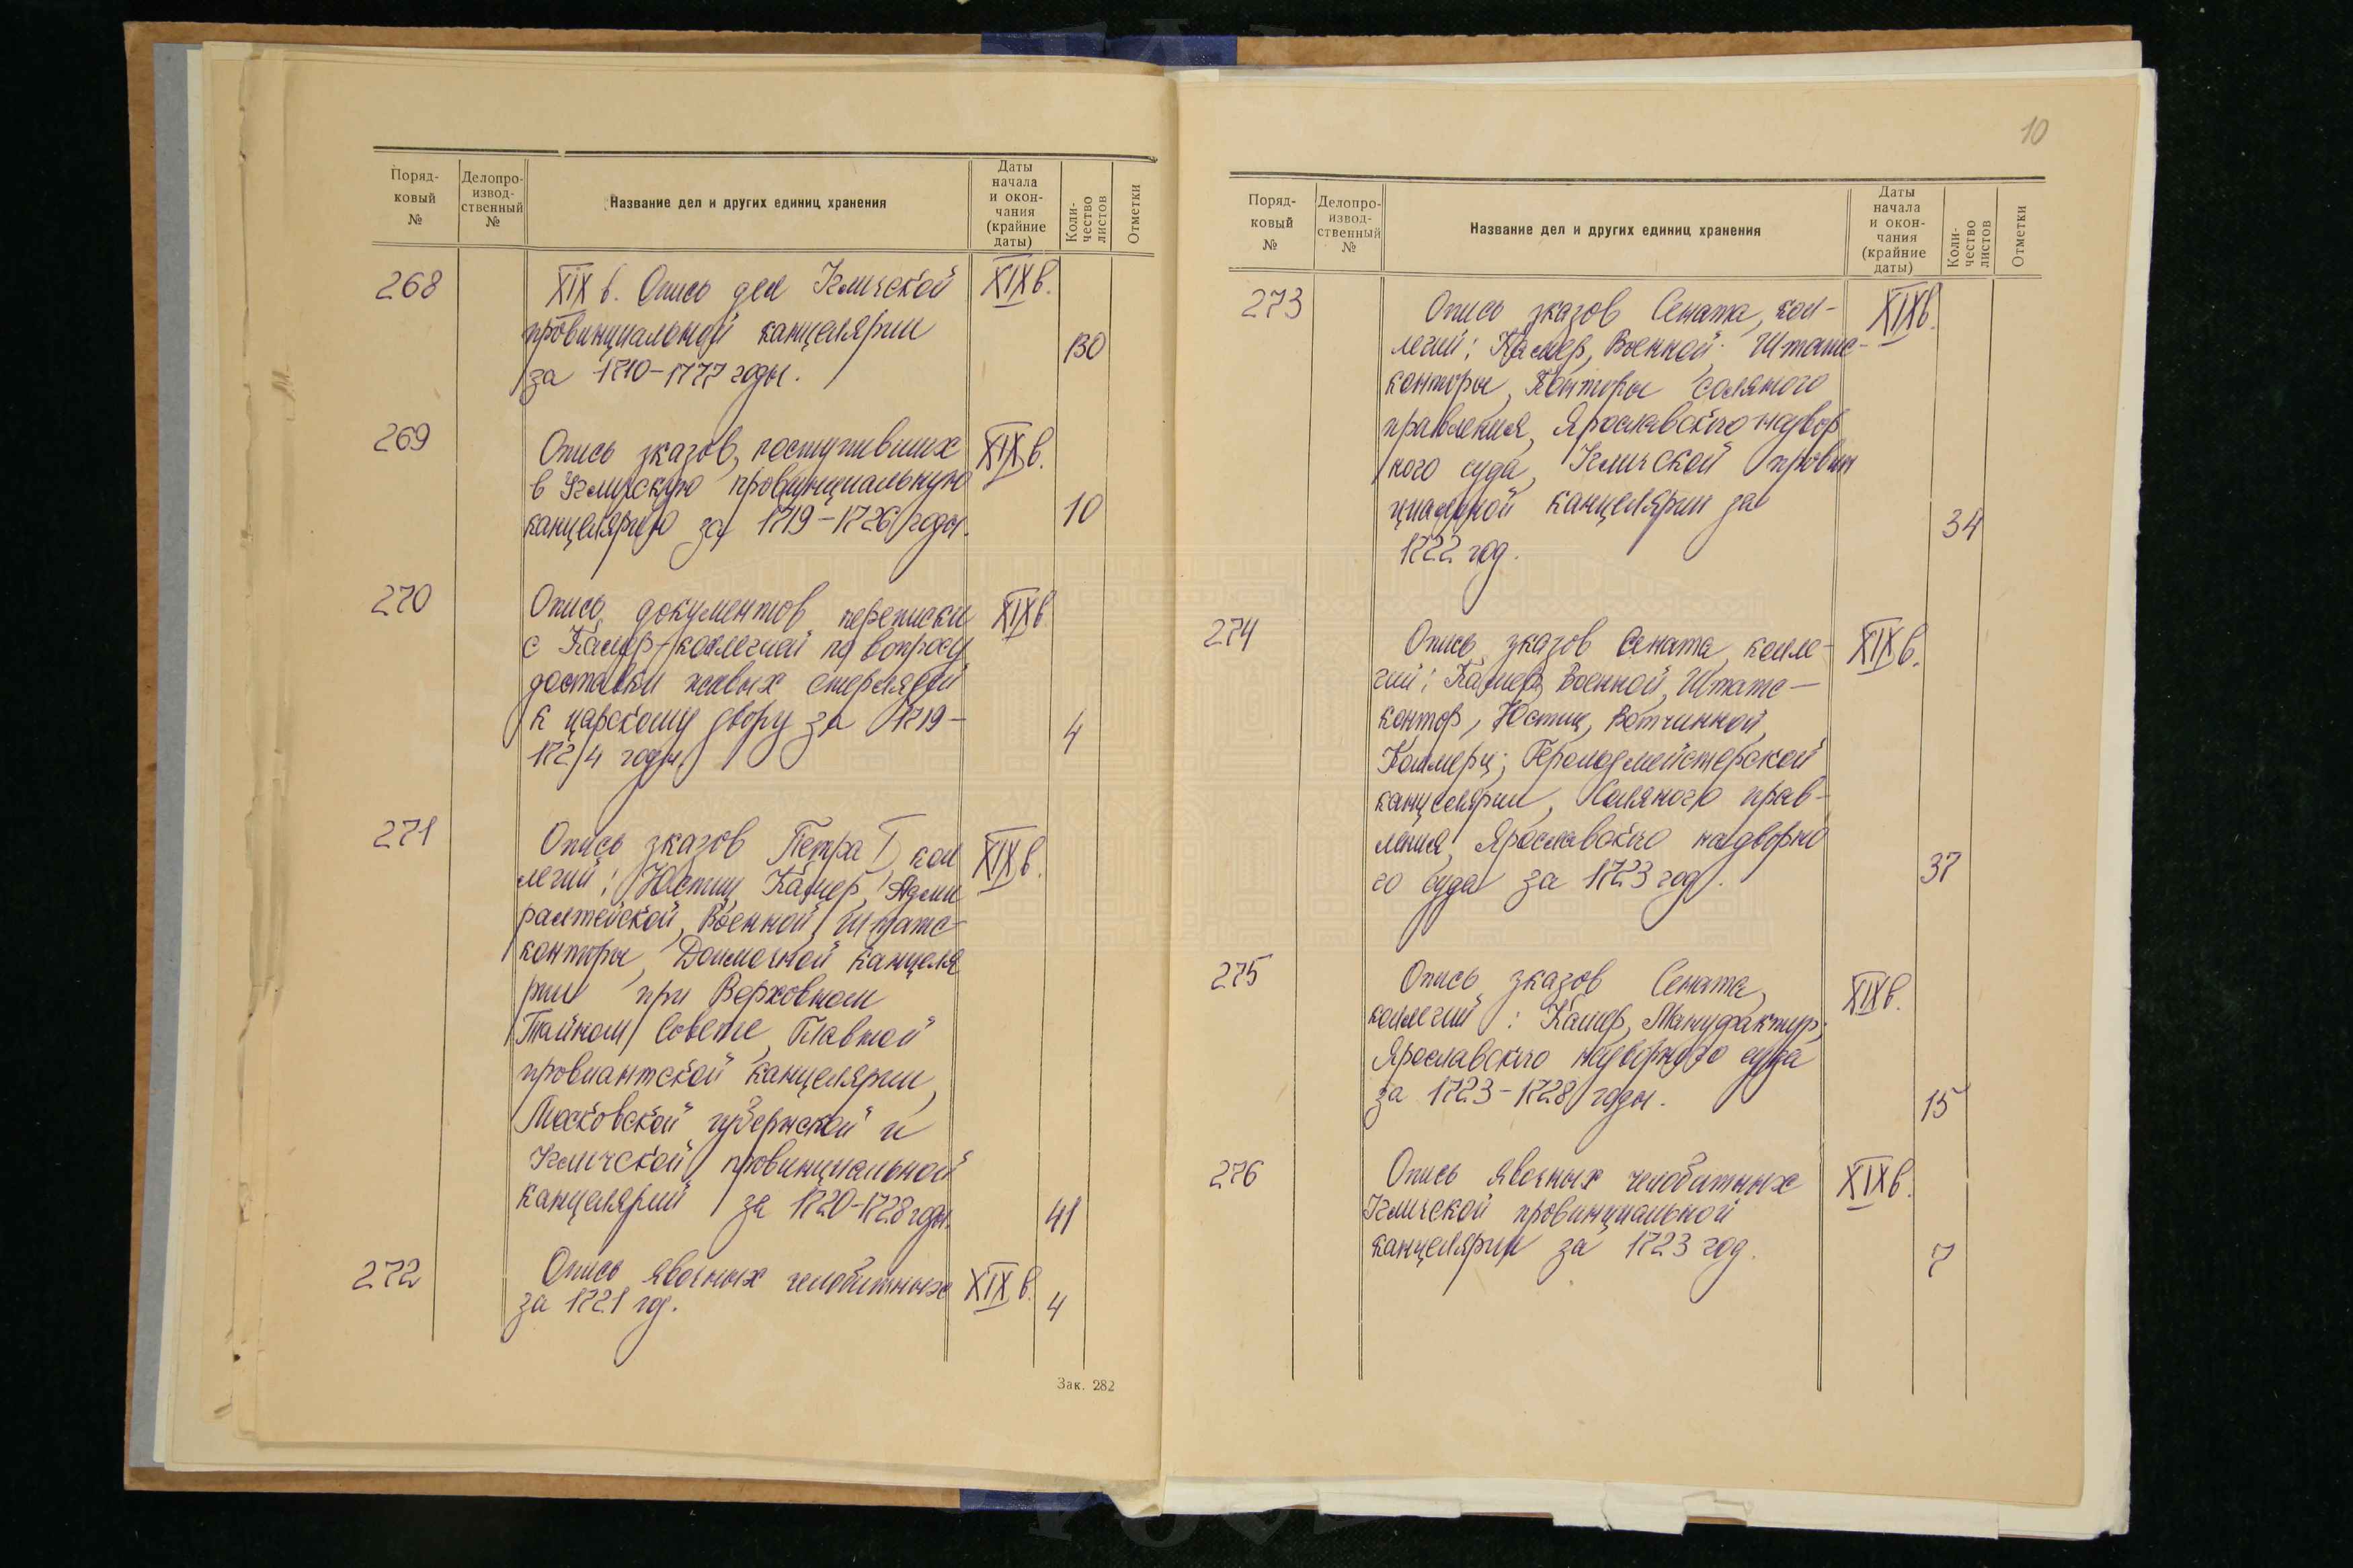 Поряд-
ковый
№
Делопро-
извод-
ственный
№
Название дел и других единиц хранения
Даты
начала
и окон-
чания
(крайние
даты)
Коли-
чество
листов
Отметки
268
XIX в. Опись дел Угличской
провинциальной канцелярии
за 1710-1777 годы.
XIX в.
130
269
Опись указов, поступивших
в Угличскую провинциальную
канцелярию за 1719-1726 годы.
XIX в.
10
270
Опись документов переписки
с Камер-коллегией по вопросу
доставки живых стерлядей
к царскому двору за 1719-
1724 годы.
XIX в
4
271
Опись указов Петра I, кол
легий: Юстиц, Камер, Адми
ралтейской, Военной, Штатс-
конторы, Доимочной канцеля
рии при Верховном
Тайном Совете, Главной
провиантской канцелярии,
Московской губернской и
Угличской провинциальной
канцелярий за 1720-1728 годы.
XIX в.
41
272
Опись явочных челобитных
за 1721 год.
XIX в.
4
Зак. 282
10
Поряд-
ковый
№
Делопро-
извод-
ственный
№
Название дел и других единиц хранения
Даты
начала
и окон-
чания
(крайние
даты)
Коли-
чество
листов
Отметки
273
Опись указов Сената, кол-
легий: Камер, Военной. Штатс-
конторы, Конторы Соляного
правления, Ярославского надвор
ного суда, Угличской провин
циальной канцелярии за
1722 год.
XIX в.
34
274
Опись указов Сената, колле-
гий: Камер, Военной, Штатс-
контор, Юстиц, Вотчинной,
Коммерц; Герольдмейстерской
канцелярии, Соляного прав-
ления, Ярославского надворно
го суда за 1723 год.
XIX в.
37
275
Опись указов Сената,
коллегий : Камер, Мануфактур;
Ярославского надворного суда
за 1723-1728 годы.
XIX в.
15
276
Опись явочных челобитных
Угличской провинциальной
канцелярии за 1723 год.
XIX в.
7